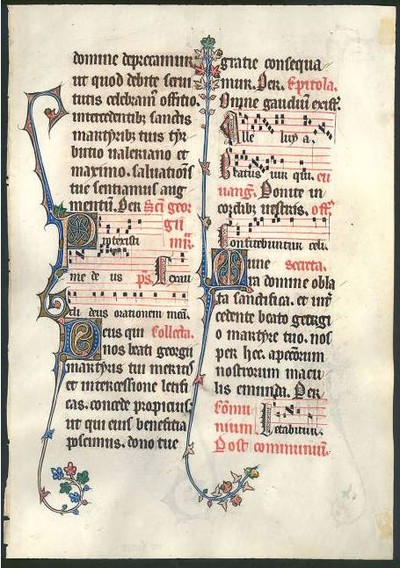 domine deprecamur
ut quod debite serui
tutis celebram offitio
intercedentib; sanctis
martyrib; tuis tyr
burtio ualeriano et
maximo. saluationis
tue sentiamus aug
mentu. Per Sci geor
gii
mr.
Protexisti
me de us ps. Exau
di deus orationem mea.
Deus qui Collecta.
nos beati georgii
martyris tui meritis
et intercessione letifi
cas. concede propicius.
ut qui eius beneficia
poscimus. dono tue
gratie consequa
mur. Per. Epistola.
Omne gaudiu exist.
Alle luy a.
Beatus uir qui. eu
uang. Ponite in
cordib; uestris. off.
Confitebuntur celi.
secreta.
ra domine obla
ta sanctifica. et int
cedente beato georgi
o martyre tuo. nos
per hec. a
nostrorum macu
lis emunda. Per
Comu
nium Letabitur.
Post communiu.